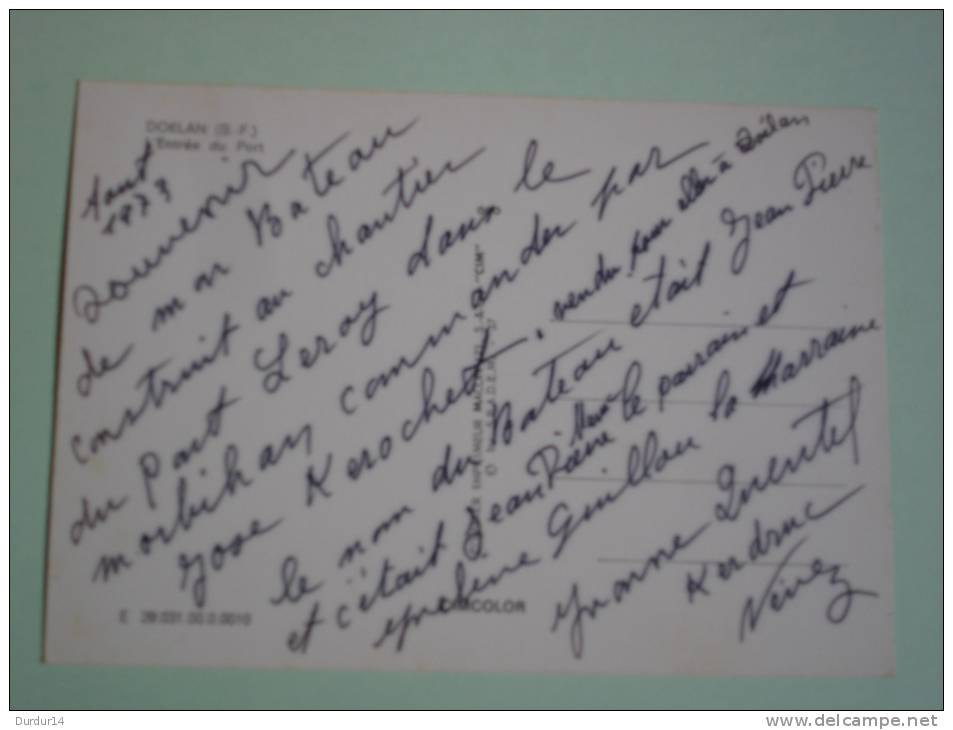 DOELAN (S.-F.)
Entrée du Port
Aout
1973
Souvenir
de mon Bateau
construit au chantier
du Pont Leroy dans le
morbihan commander par
Jose Kerochet, vendu pour aller à Doëlan
le nom du Bateau etait Jean Pierre
et c'était Jean Pierre le parrain et
Guillou la Marraine
Yvonne Quentel
Kerdruc
Névez
"CIM"
COLOR
E 29.031.00.0.0010
Durdur14
www.delcampe.net